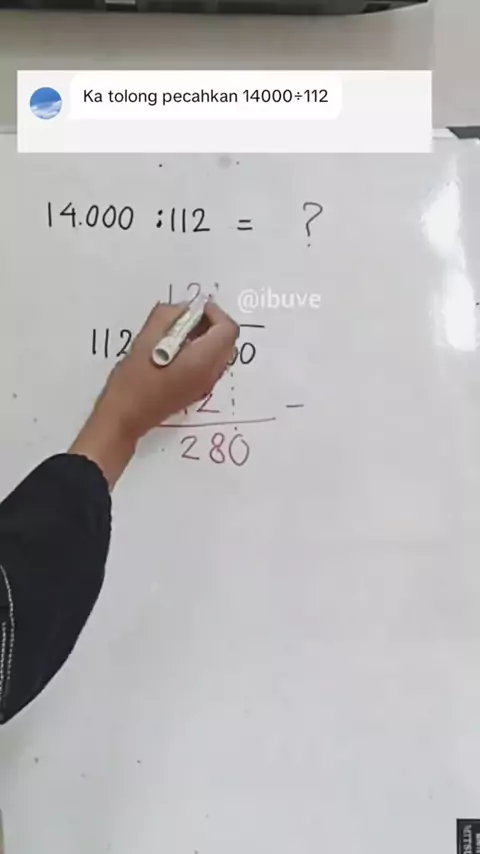 Ka tolong pecahkan 14000÷112
14.000 :112 = ?
12
@ibuve
112
00
2 -
280